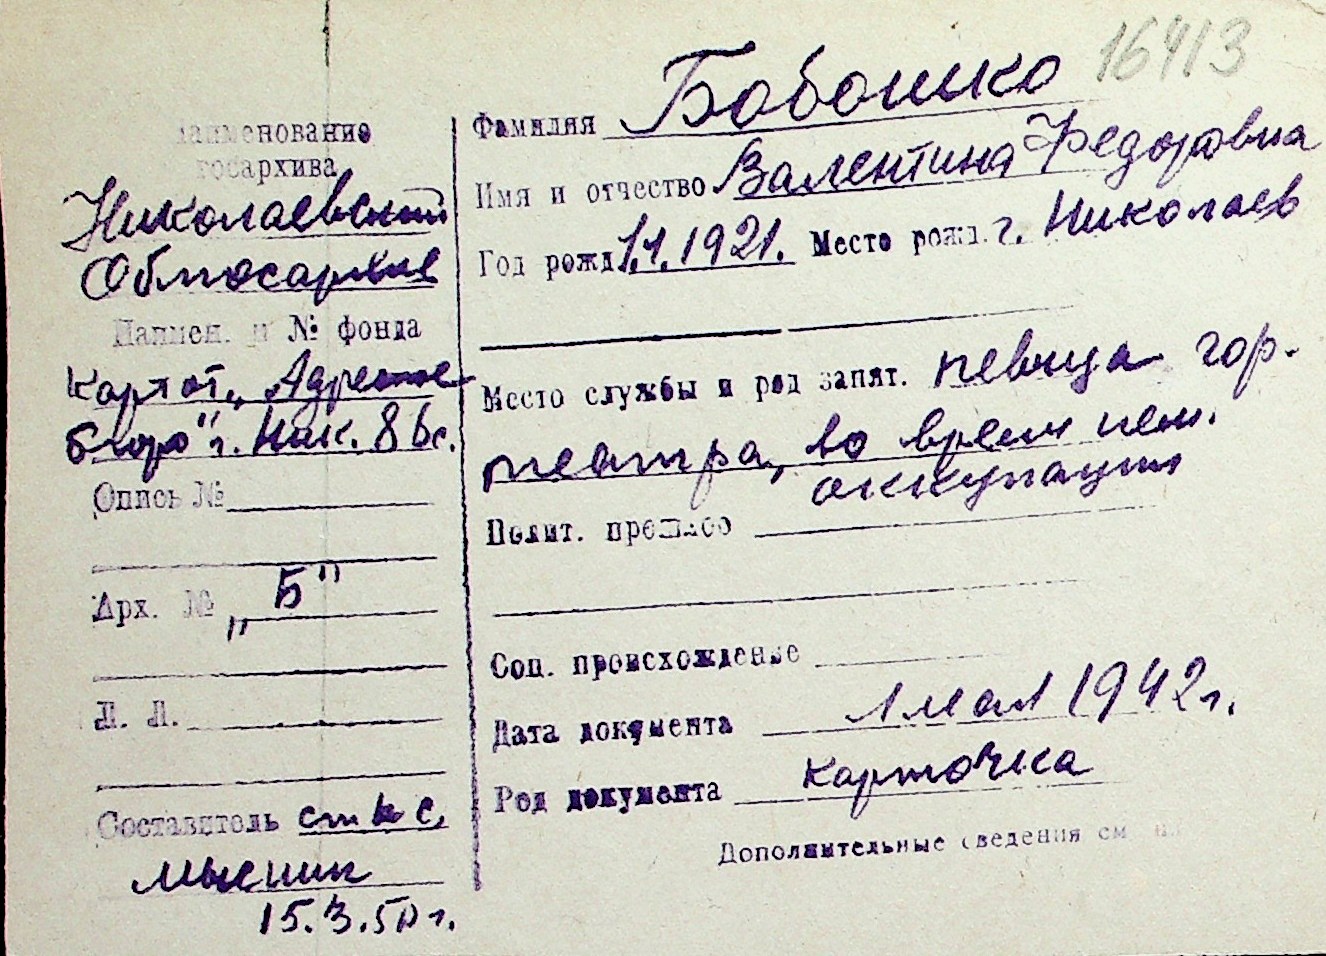 16413
Наименование
госархива
Николаевский
Облгосархив
Наимен. и № фонда
Картот. „Адресное
бюро" г. Ник. 86с.
Опись №
Арх. № „Б"
Л. Л.
Составитель ст н с.
15.3.50 г.
Фамилия Бобошко
Имя и отчество Валентина Федоровна
Год рожд 1.1.1921. Место рожд. г. Николаев
Место службы и род занят. певица гор.
театра, во время нем.
оккупации
Полит. прошлое
Соц. происхождение
Дата документа 1 мая 1942 г.
Род документа карточка
Дополнительные сведения см на